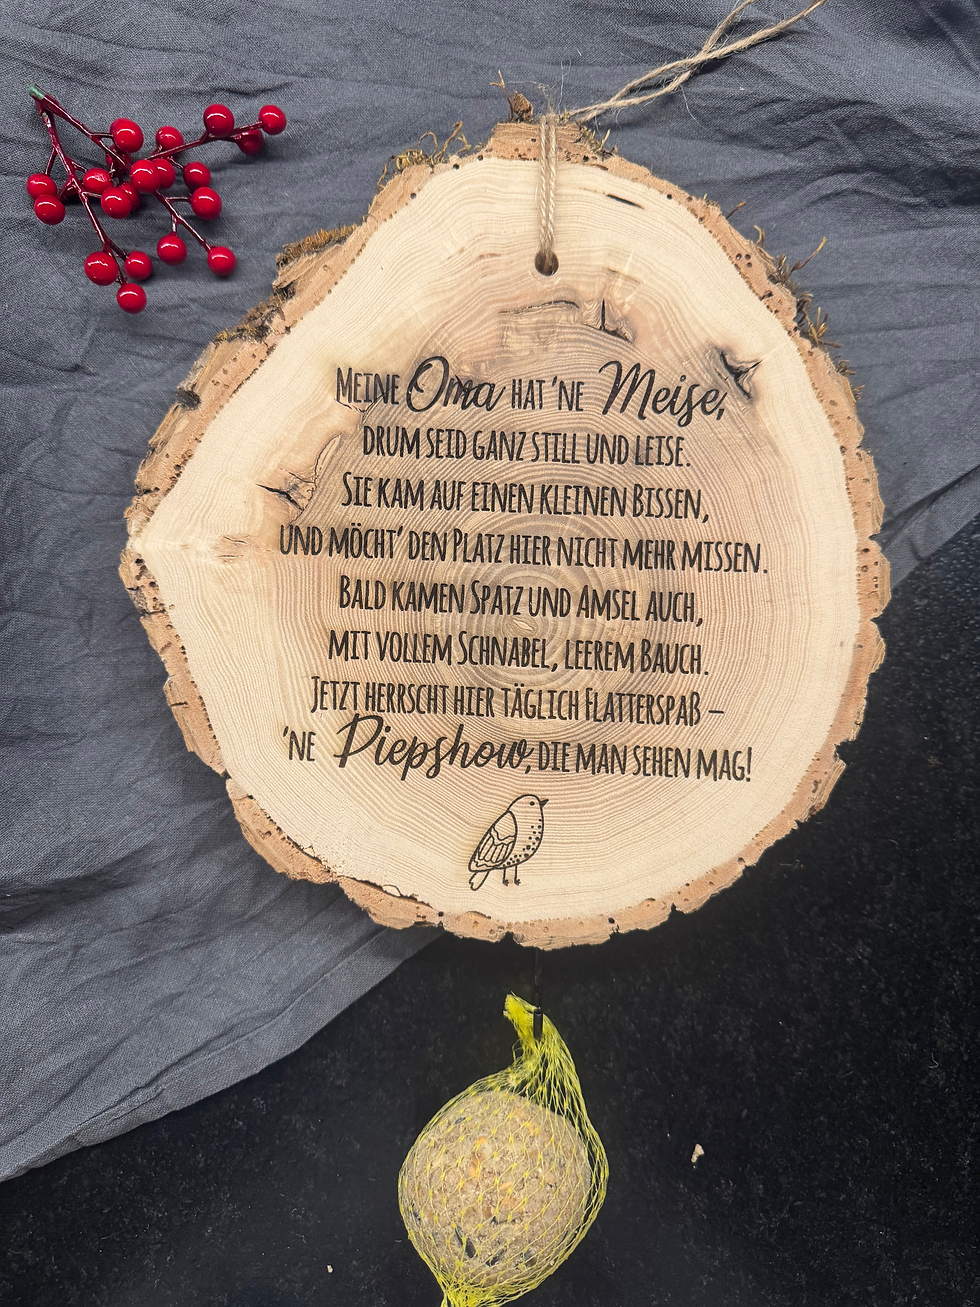 Meine Oma hat 'ne Meise,
drum seid ganz still und leise.
Sie kam auf einen kleinen Bissen,
und möcht' den Platz hier nicht mehr missen.
Bald kamen Spatz und Amsel auch,
mit vollem Schnabel, leerem Bauch.
Jetzt herrscht hier täglich Flatterspaß –
'ne Piepshow, die man sehen mag!